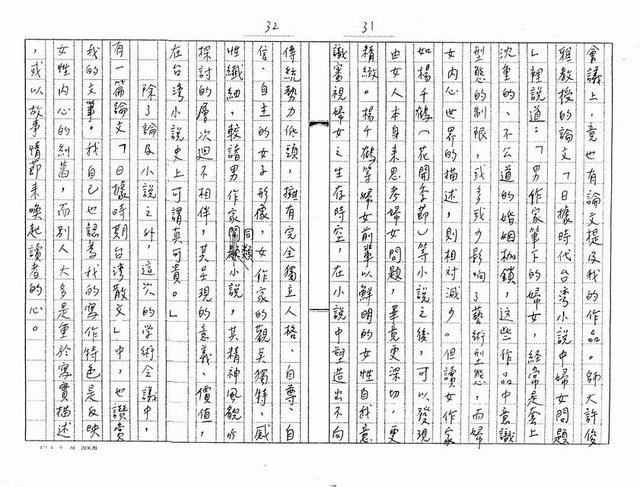 31
會議上，竟也有論文提及我的作品。師大許俊
雅教授的論文「日據時代台灣小說中婦女問題
」裡說道：「男作家筆下的婦女，經常是套上
沈重的、不公道的婚姻枷鎖，這些作品中意識
型態的制限，或多或少影响了藝術型態，而婦
女內心世界的描述，則相對減少。但讀女作家
如楊千鶴（花開季節）等小說之後，可以發現
由女人本身來思考婦女問題，畢竟更深切，更
精緻。楊千鶴等婦女前輩以鮮明的女性自我意
識審視婦女之生存時空，在小說中塑造出不向
32
傳統勢力低頭，擁有完全獨立人格、自尊、自
信、自主的女子形像，女作家的觀矣獨特、感
性纖細，較諸男作家同類小說，其精神風貌所
探討的層次迴不相侔，其呈現的意義、價值，
在台灣小說史上可謂真可貴。」
除了論及小說之外，這次的學術會議中，
有一篇論文「日據時期台湾散文」中，也讚赏
我的文筆。我自己也認為我的寫作特色是反映
女性內心的糾葛，而別人大多是重於寫實描述
，或以故事情節来喚起讀者的心。